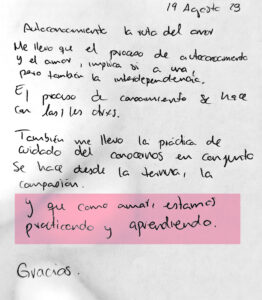 19 Agosto 23
Autoconocimiento la ruta del amor
Me llevo que el proceso de autoconocimiento
y el amor, implica si a una,
pero también la interdependencia.
El proceso de conocimiento se hace
con las | les otrxs.
También me llevo la práctica de
cuidado del conocernos en conjunto
Se hace desde la ternura, la
compasión.
Y que como amar, estamos
practicando y aprendiendo.
Gracias.